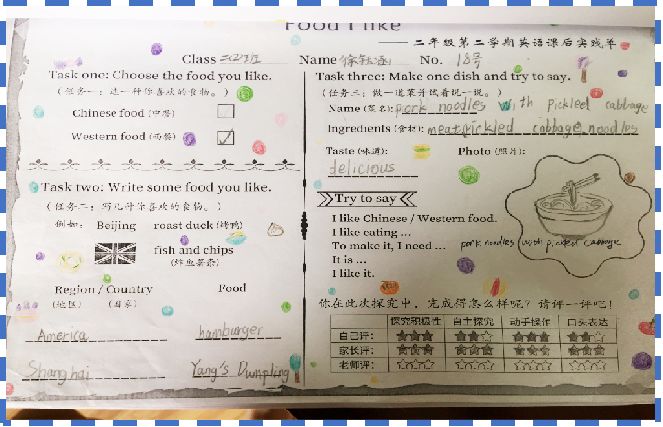 Food I like
—— 二年级第二学期英语课后实践单
Class 二(2)班 Name No. 18号
Task one: Choose the food you like.
(任务一：选一种你喜欢的食物。)
Chinese food (中餐)
Western food (西餐)
Task two: Write some food you like.
(任务二：写几种你喜欢的食物。)
例如: Beijing roast duck (烤鸭)
fish and chips
(炸鱼薯条)
Region / Country Food
(地区) (国家)
America hamburger
Shanghai Yang's Dumpling
Task three: Make one dish and try to say.
(任务三：做一道菜并试着说一说。)
Name (菜名): pork noodles with pickled cabbage
Ingredients (食材): meat pickled cabbage noodles
Taste (味道): Photo (照片):
delicious
Try to say
I like Chinese / Western food.
I like eating ...
To make it, I need ...
It is ...
I like it.
pork noodles with pickled cabbage
你在此次探究中，完成得怎么样呢？请评一评吧！
探究积极性 自主探究 动手操作 口头表达
自己评: ★★★ ★★☆ ★★★ ★★☆
家长评: ★★★ ★★★ ★★★ ★★★
老师评: ☆☆☆ ☆☆☆ ☆☆☆ ☆☆☆